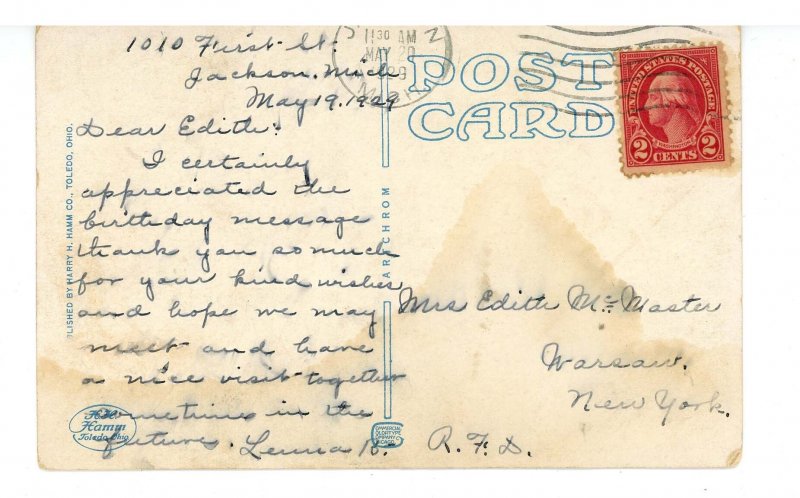 1010 First St.
Jackson, Mich
May 19, 1929
Dear Edith:
I certainly
appreciated the
birthday message
thank you so much
for your kind wishes
and hope we may
meet and have
a nice visit together
sometime in the
future. Lenna B.
POST
CARD
11 30 AM
MAY 20
MICH
UNITED STATES POSTAGE
2 CENTS 2
Mrs Edith McMaster
Warsaw.
New York.
R.F.D.
PUBLISHED BY HARRY H. HAMM CO., TOLEDO, OHIO.
H.H.
Hamm
Toledo Ohio